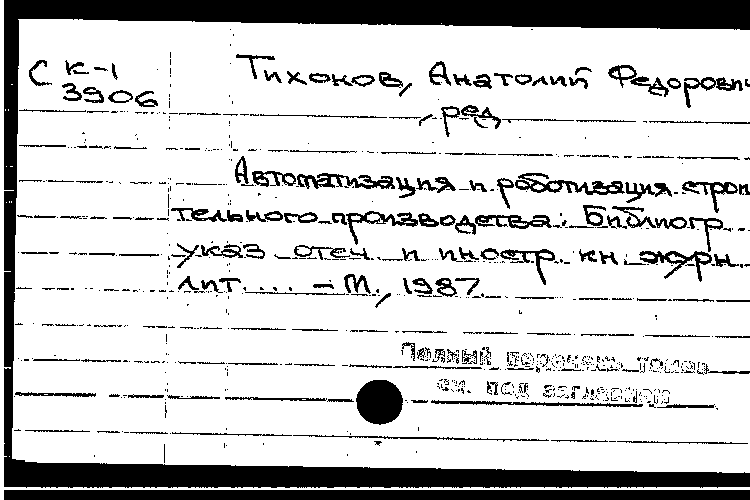 С К-1
3906
Тихонов, Анатолий Федорович
, ред.
Автоматизация и роботизация строи
тельного производства: Библиогр.
указ. отеч. и иностр. кн. журн.
лит. ... - М., 1987.
Полный перечень томов
см. под заглавием